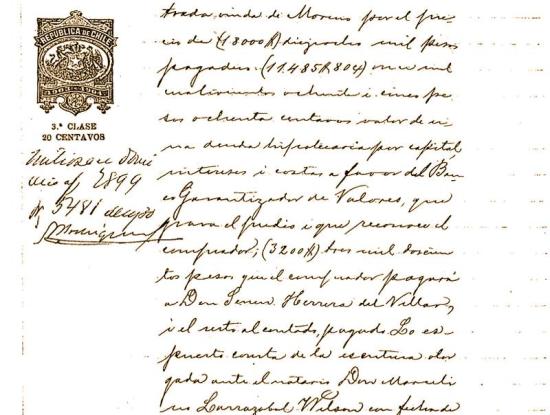 REPUBLICA DE CHILE
3.ª CLASE
20 CENTAVOS
1899
3481
trada, viuda de Moreno por el pre-
cio de (18000$) dieziocho mil pesos
pagados: (11.485$ 804) once mil
cuatrocientos ochenta i cinco pe-
sos ochenta centavos valor de u-
na deuda hipotecaria por capital,
intereses i costas a favor del Ban-
co Garantizador de Valores, que
grava el predio i que reconoce el
comprador; (3200$) tres mil doscien-
tos pesos que el comprador pagará
a Don Herrera del Villar,
i el resto al contado, pagado. Lo es-
puesto consta de la escritura otor-
gada ante el notario Don Marceli-
no Larrazabal Wilson con fecha de